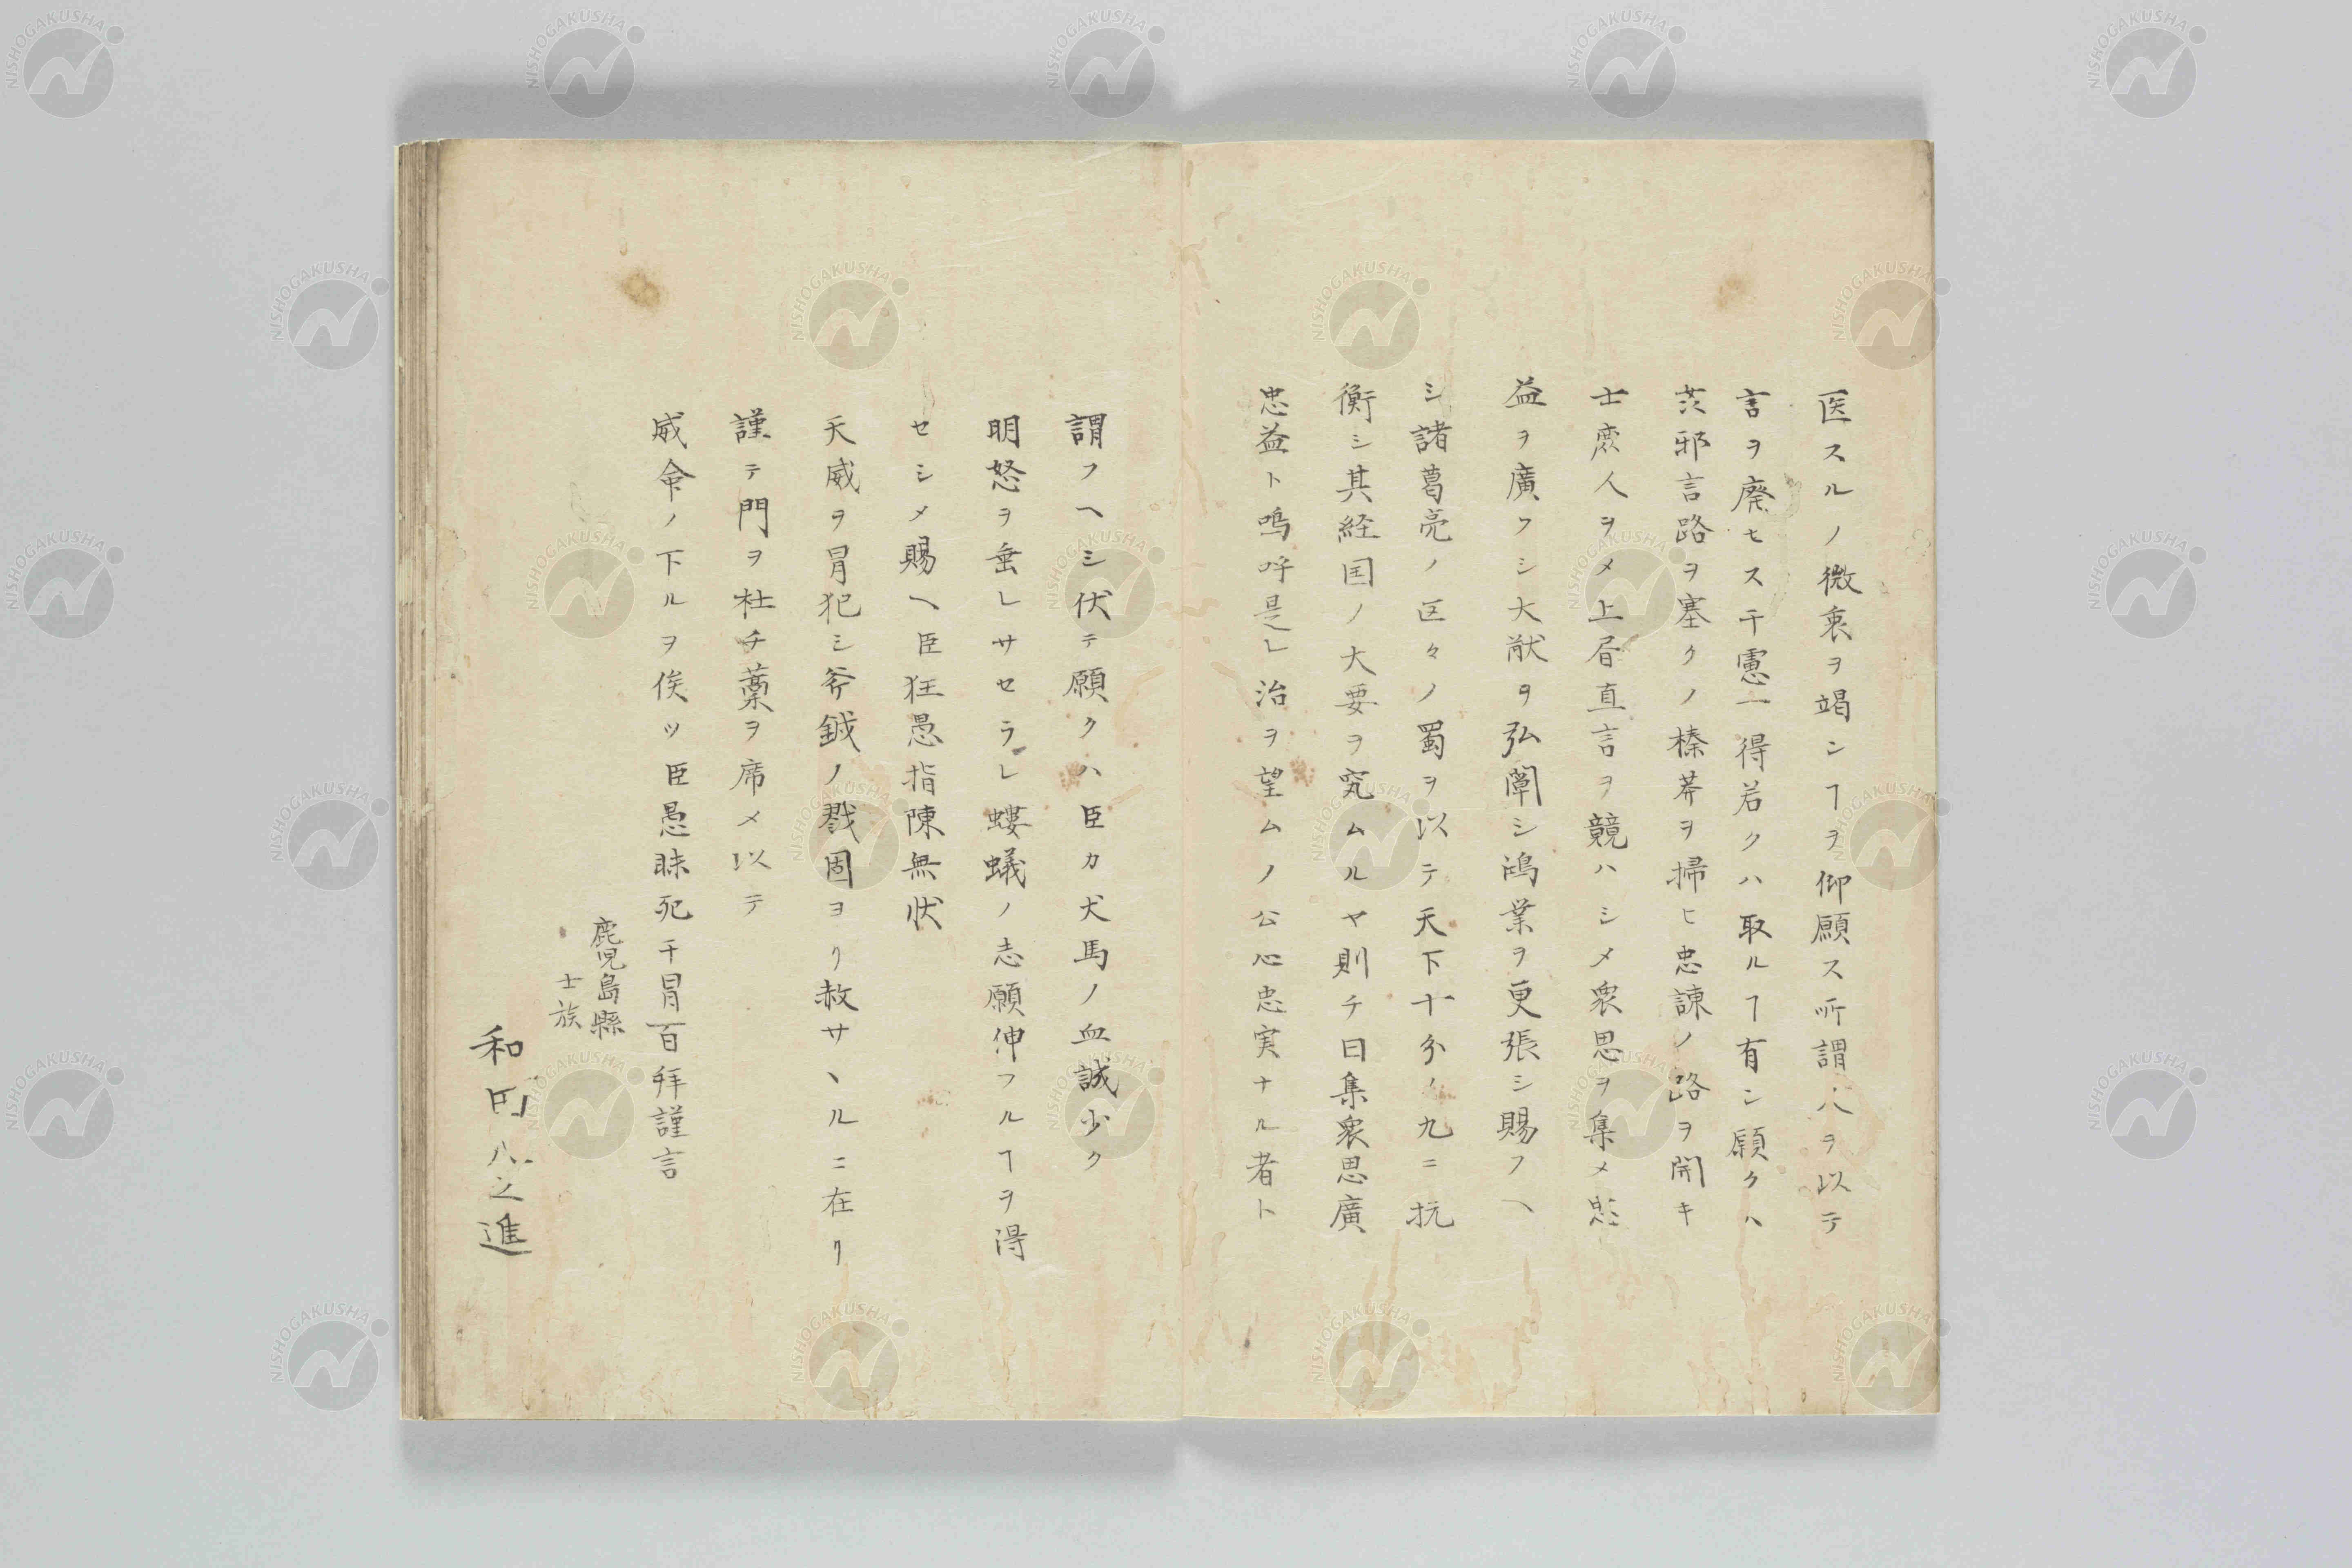 医スルノ微衷ヲ竭ンヿヲ仰願ス所謂人ヲ以テ
言ヲ廃セス千慮一得若クハ取ルヿ有ン願クハ
茨邪言路ヲ塞クノ榛莽ヲ掃ヒ忠諌ノ路ヲ開キ
士庶人ヲメ上層直言ヲ競ハシメ衆思ヲ集メ忠
益ヲ廣クシ大猷ヲ弘闡シ鴻業ヲ更張シ賜フヘ
シ諸葛亮ノ区々ノ蜀ヲ以テ天下十分ノ九ニ抗
衡シ其経国ノ大要ヲ究ムルヤ則チ曰集衆思廣
忠益ト嗚呼是レ治ヲ望ムノ公心忠実ナル者ト
謂フヘシ伏テ願クハ臣カ犬馬ノ血誠少ク
明怒ヲ垂レサセラレ螻蟻ノ志願伸フルヿヲ得
セシメ賜ヘ臣狂愚指陳無状
天威ヲ冒犯シ斧鉞ノ戮固ヨリ赦サヽルニ在リ
謹テ門ヲ杜チ藁ヲ席メ以テ
威命ノ下ルヲ俟ツ臣愚昧死千冒百拜謹言
鹿児島縣
士族
和田八之進